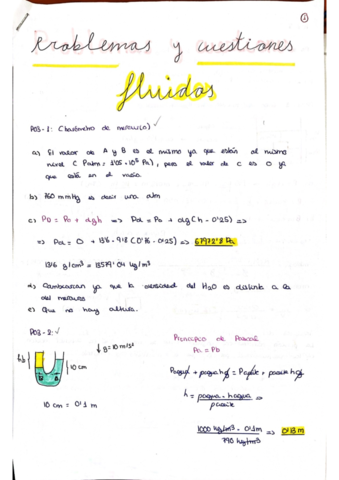 ①
Problemas y cuestiones
fluidos
P03-1: (Barómetro de mercurio) ✓
a) El valor de A y B es el mismo ya que están al mismo
nivel ( Patm = 1'05·10⁵ Pa), pero el valor de C es 0 ya
que está en el vacío.
b) 760 mmHg es decir una atm
c) PD = P0 + dgh => Pd = P0 + dg(h - 0'25) =>
=> Pd = 0 + 1316 · 9'8 (0'76 - 0'25) => 67972'8 Pa
13'6 g/cm³ = 13579'04 kg/m³
d) Cambiarían ya que la densidad del H2O es distinta a la
del mercurio
e) Que no hay altura.
P03-2: ✓
Principio de Pascal
Pa = Pb
hb
↓ g = 10 m/s²
10 cm
10 cm = 0'1 m
h =
1000 kg/m³ · 0'1m => 0'13 m
790 kg/m³